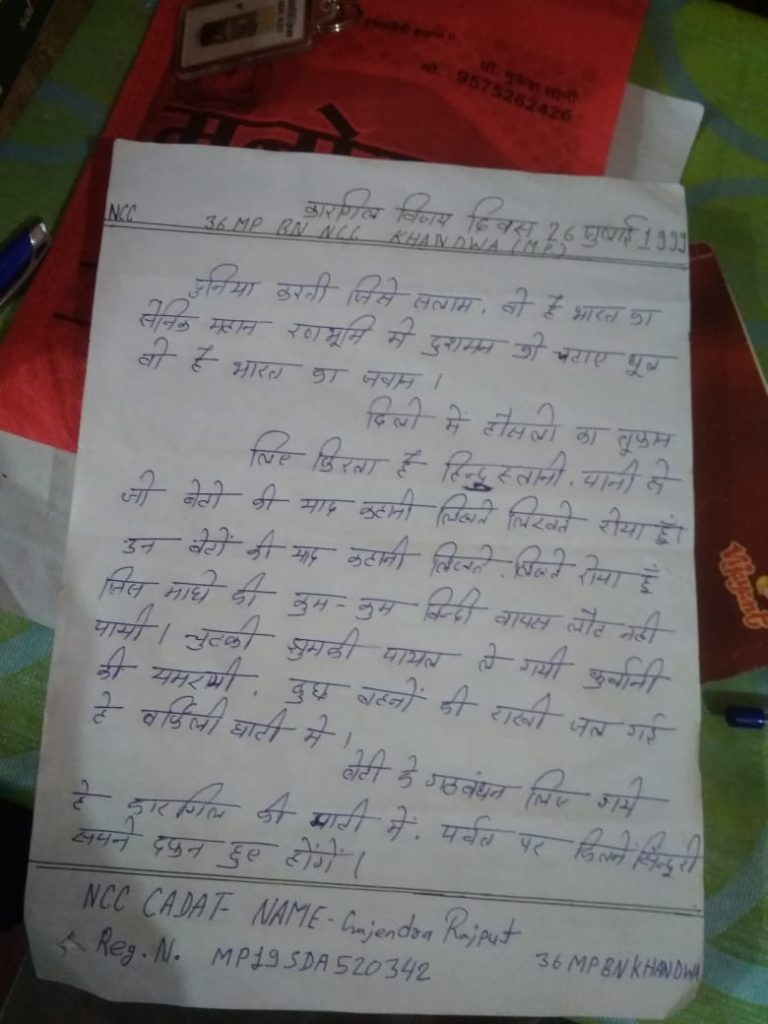 प्रो. मुकेश सोनी
मो. 9575262426
NCC कारगिल विजय दिवस 26 जुलाई 1999
36 MP BN NCC KHANDWA (MP)
दुनिया करती जिसे सलाम. वो है भारत का
सेनिक महान रणभूमि मे दुशमन को चटाए धूल
वो है भारत का जवान।
दिलो में हौसलो का तुफान
लिए फिरता है हिन्दुस्तानी. पानी से
जो बेटो की याद कहानी लिखते लिखते रोया हूँ।
उन बेटों की याद कहानी लिखते. लिखते रोया हूँ
जिस माथे की कुम-कुम बिन्दी वापस लौट नही
पायी। चुटकी झुमकी पायल ले गयी कुर्बानी
की अमरायी. कुछ बहनों की राखी जल गई
हे बर्फिली घाटी मे।
वेदी के गठबंधन लिए गये
हे कारगिल की माटी में. पर्वत पर कितने सिन्दुरी
सपने दफन हुए होंगें।
NCC CADAT- NAME- Gajendra Rajput
Reg. N. MP19SDA520342 36 MP BN KHANDWA